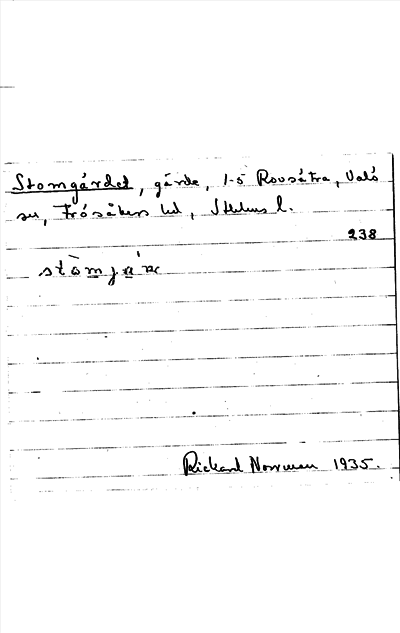 Stomgärdet, gärde, 1-5 Rovsätra, Valö
sn, Frösåkers hd, Sthlms l.
238
stò̀mjæ̀'ɽɛ
Rickard Norrman 1935.